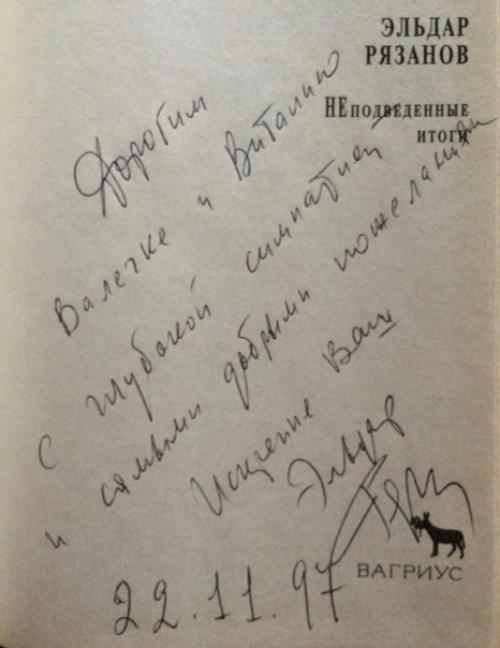 ЭЛЬДАР
РЯЗАНОВ
НЕПОДВЕДЕННЫЕ
ИТОГИ
Дорогим
Валечке и Виталию
с глубокой симпатией
и самыми добрыми пожеланиями
Искренне Ваш
Эльдар
22.11.97
ВАГРИУС